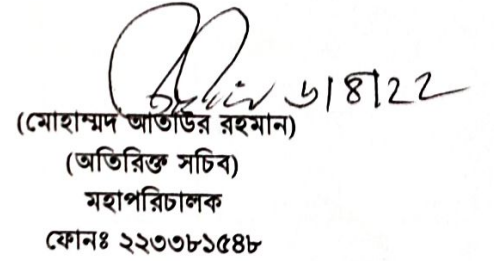 ৬/৪/২২
(মোহাম্মদ আতাউর রহমান)
(অতিরিক্ত সচিব)
মহাপরিচালক
ফোনঃ ২২৩৩৮১৫৪৮